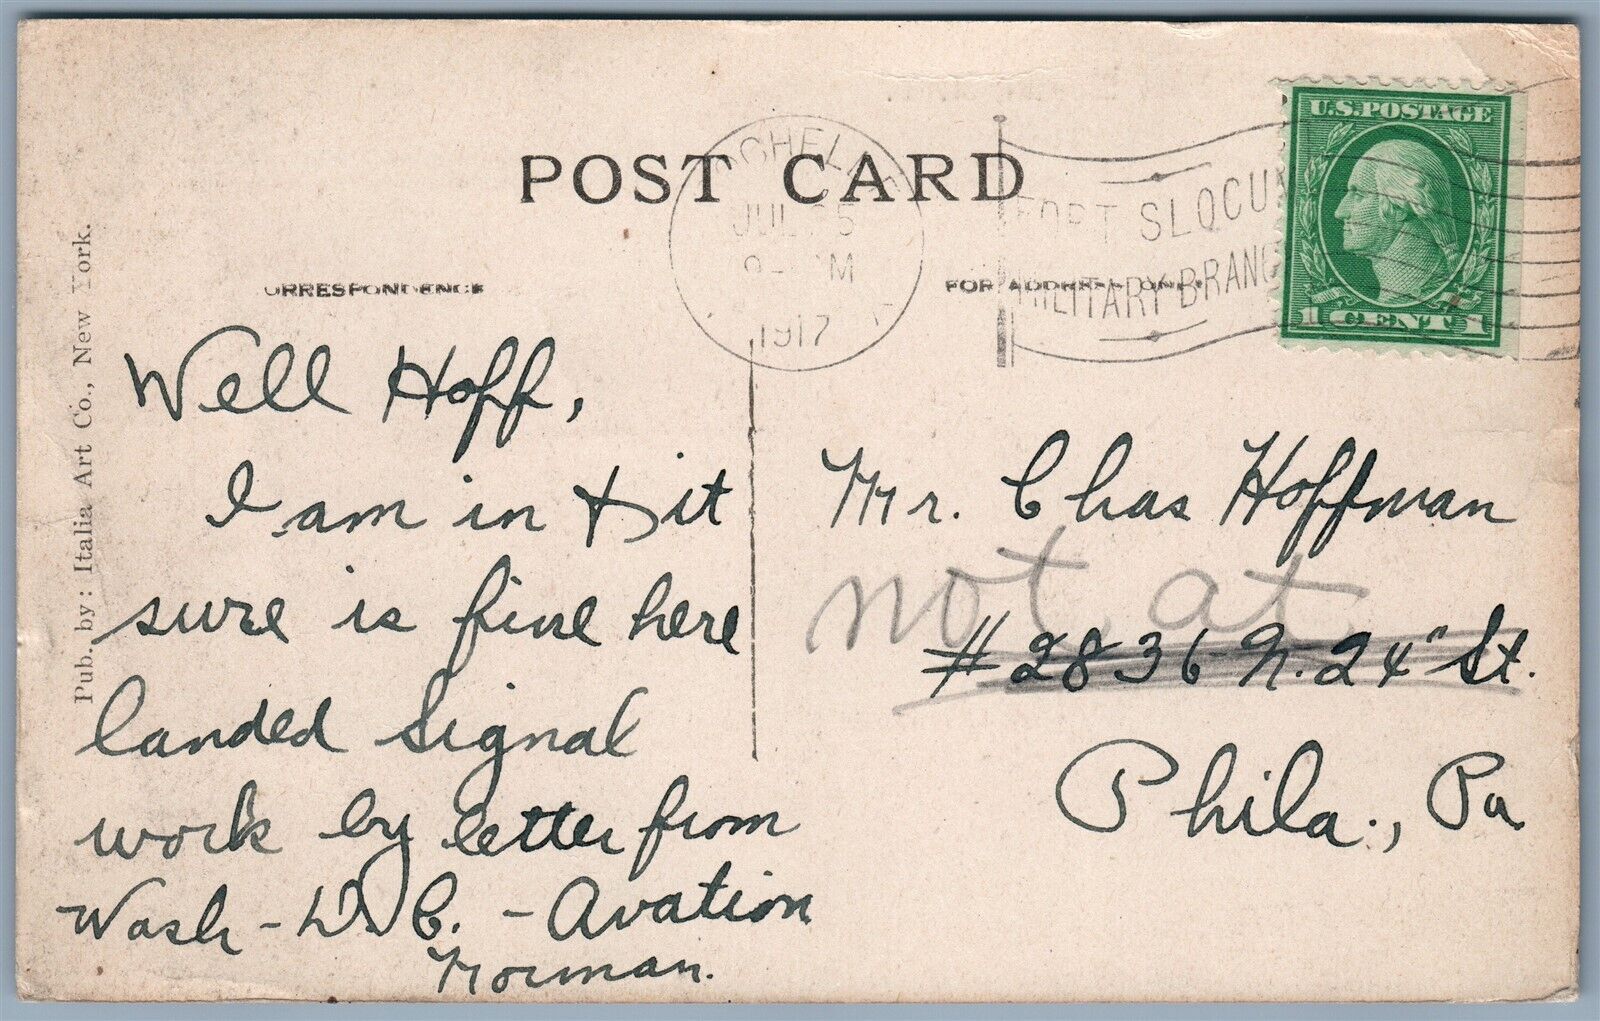 POST CARD
U.S. POSTAGE
1 CENT 1
JUL 25
1917
FORT SLOCU
MILITARY BRANC
CORRESPONDENCE
FOR ADDRESS ONLY
Pub. by: Italia Art Co., New York.
Well Hoff,
I am in & it
sure is fine here
landed Signal
work by letter from
Wash - D.C. - Avation
Norman.
Mr. Chas Hoffman
not at
# 2836 N. 24" St.
Phila., Pa